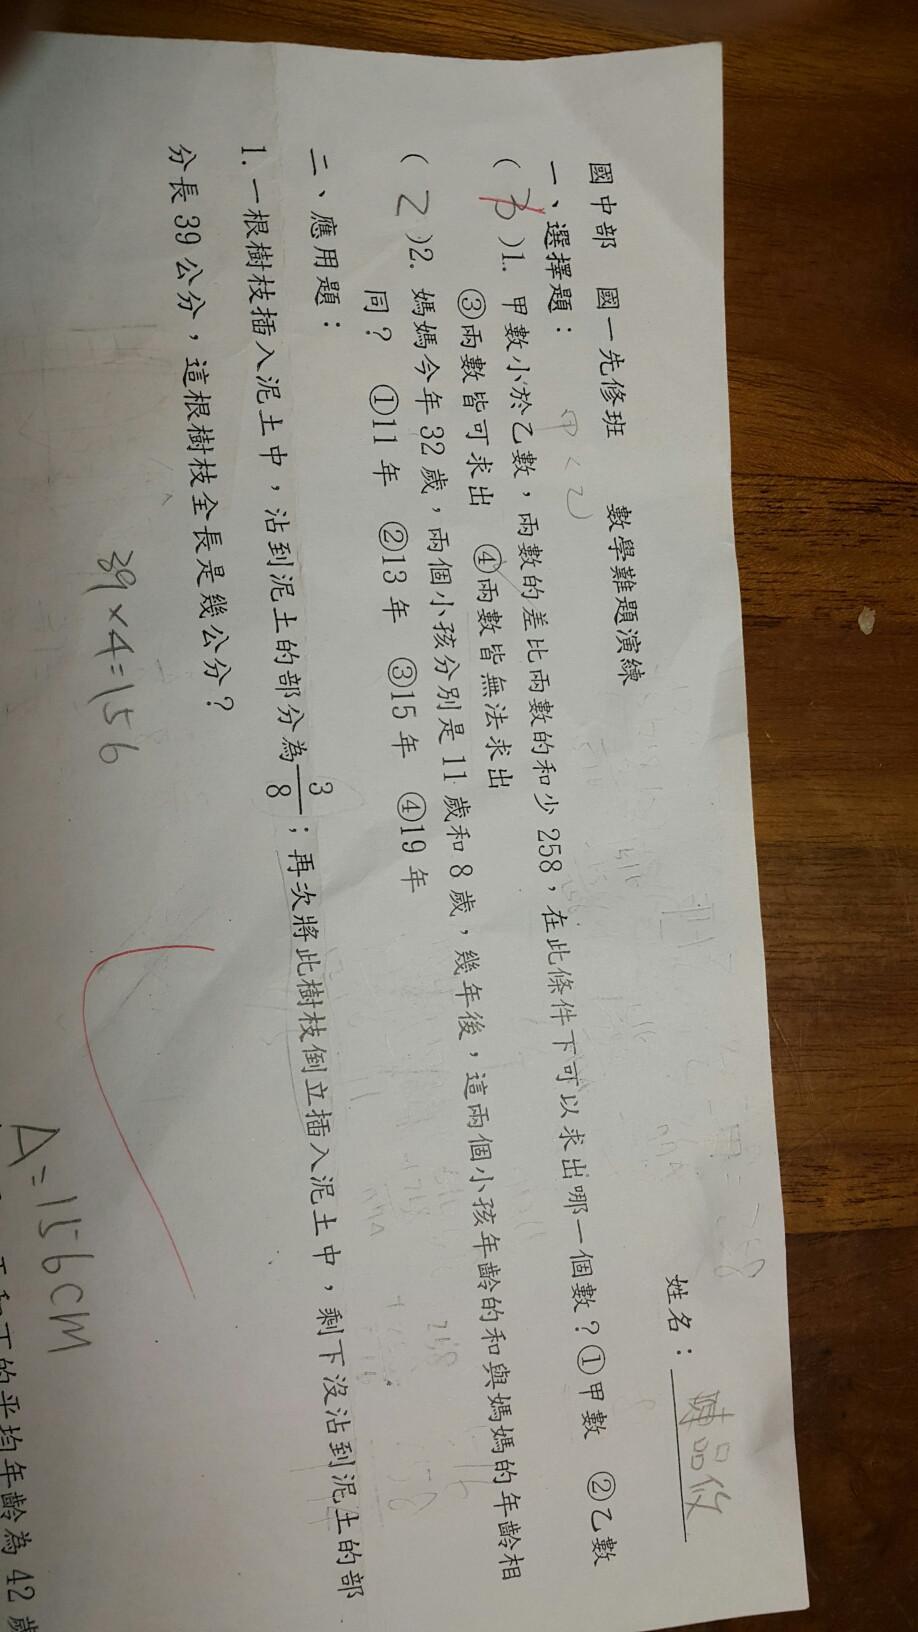 國中部 國一先修班 數學難題演練 姓名：
一、選擇題： 甲<乙
( )1. 甲數小於乙數，兩數的差比兩數的和少258，在此條件下可以求出哪一個數？①甲數 ②乙數
③兩數皆可求出 ④兩數皆無法求出
( 2 )2. 媽媽今年32歲，兩個小孩分別是11歲和8歲，幾年後，這兩個小孩年齡的和與媽媽的年齡相
同？ ①11年 ②13年 ③15年 ④19年
二、應用題：
1. 一根樹枝插入泥土中，沾到泥土的部分為3/8；再次將此樹枝倒立插入泥土中，剩下沒沾到泥土的部
分長39公分，這根樹枝全長是幾公分？
39×4=156
A=156cm
的平均年齡為42歲